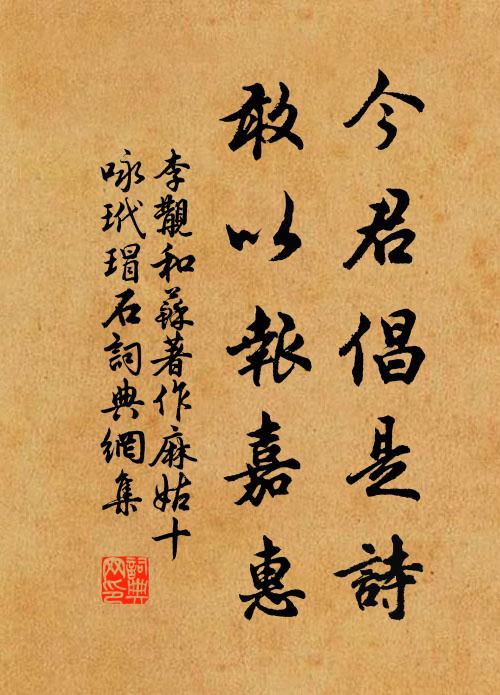 今君倡是詩
敢以報嘉惠
李覯和蘇著作麻姑十
咏玳瑁石詞典網集
詞典
网印